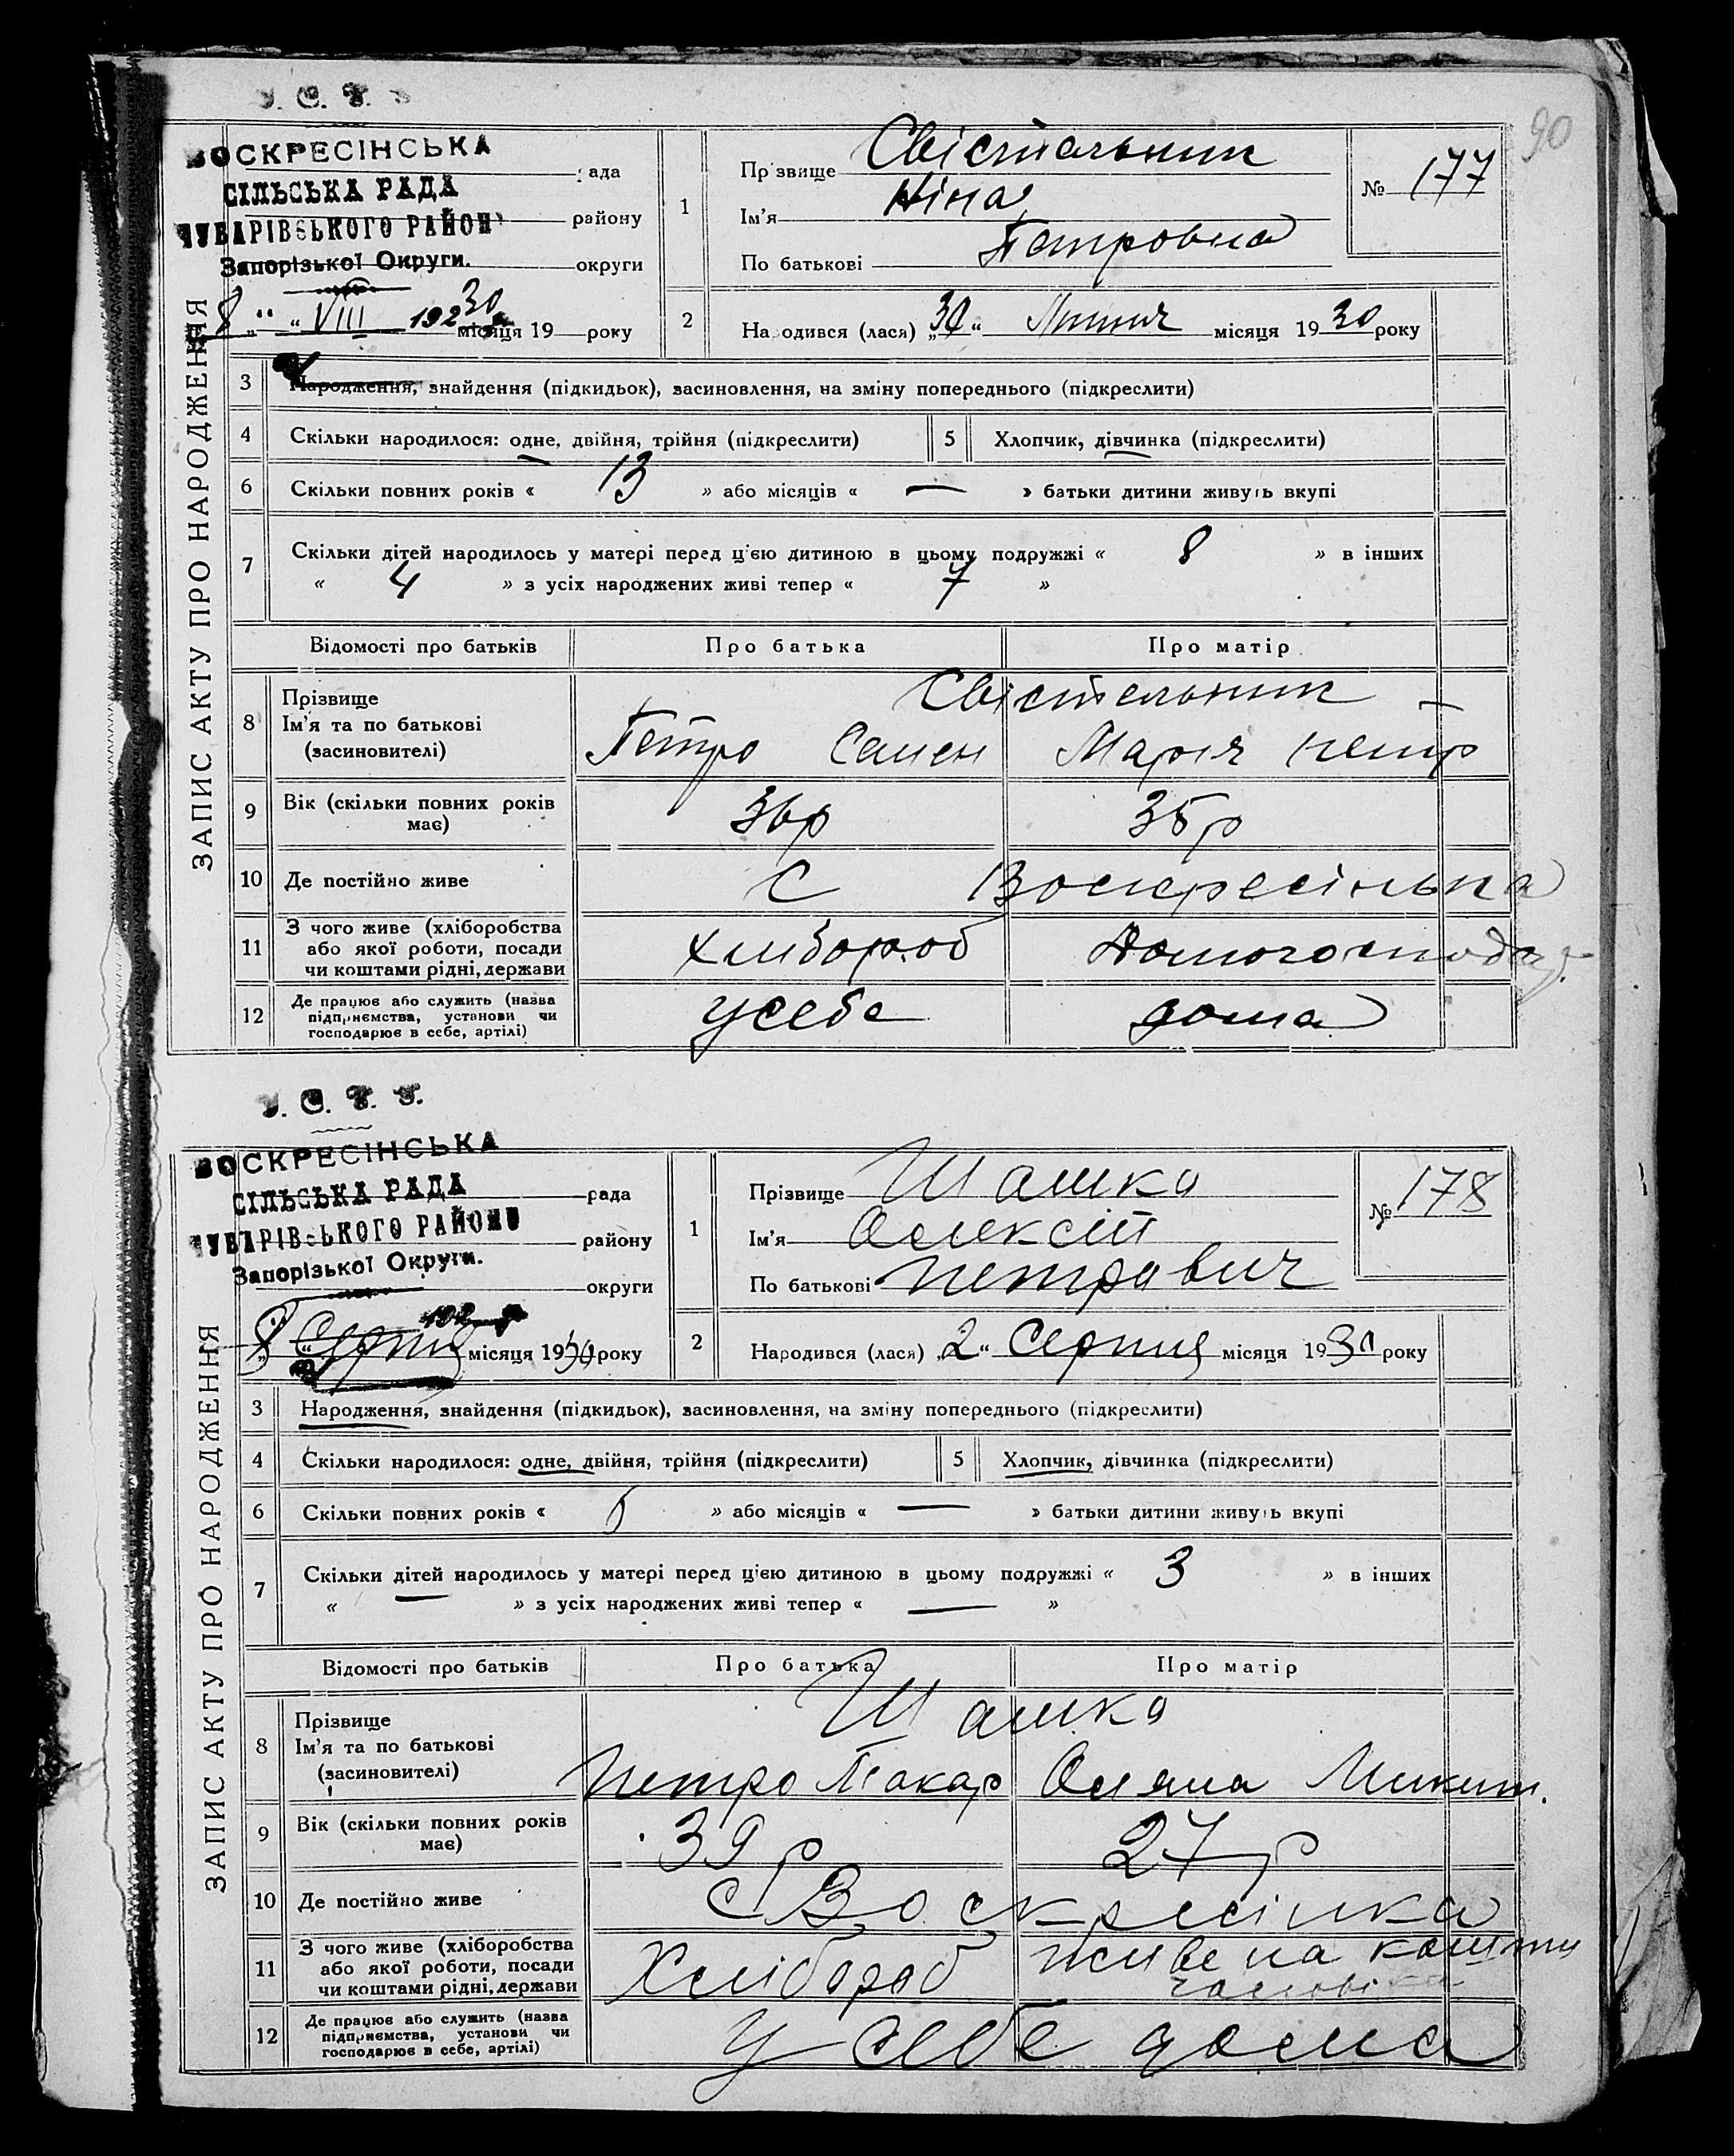 У. С. Р. Р.
90
ВОСКРЕСІНСЬКА
рада
СІЛЬСЬКА РАДА
ЧУБАРІВСЬКОГО РАЙОНУ
району
Запорізької Округи.
округи
8 " VIII 192 30 місяця 19 року
1
Прізвище Свістельник
Ім'я Ніна
По батькові Петровна
№ 177
2
Народився (лася) „30“ Липня місяця 1930 року
ЗАПИС АКТУ ПРО НАРОДЖЕННЯ
3 Народження, знайдення (підкидьок), засиновлення, на зміну попереднього (підкреслити)
4 Скільки народилося: одне, двійня, трійня (підкреслити) 5 Хлопчик, дівчинка (підкреслити)
6 Скільки повних років « 13 » або місяців « — » батьки дитини живуть вкупі
7 Скільки дітей народилось у матері перед цією дитиною в цьому подружжі « 8 » в інших
« 4 » з усіх народжених живі тепер « 7 »
Відомості про батьків Про батька Про матір
8 Прізвище
Ім'я та по батькові
(засиновителі)
Свістельник
Петро Семен Марія Петр
9 Вік (скільки повних років
має)
36р 35р
10 Де постійно живе С Воскресінька
11 З чого живе (хліборобства
або якої роботи, посади
чи коштами рідні, держави
Хлибороб Домогоспода
12 Де працює або служить (назва
підприємства, установи чи
господарює в себе, артілі)
у себе дома
У. С. Р. Р.
ВОСКРЕСІНСЬКА
СІЛЬСЬКА РАДА
рада
ЧУБАРІВСЬКОГО РАЙОНУ
району
Запорізької Округи.
округи
192 р
„8“ Серпня місяця 1930 року
1
Прізвище Шашко
Ім'я Олексій
По батькові Петрович
№ 178
2
Народився (лася) „2“ Серпня місяця 1930 року
ЗАПИС АКТУ ПРО НАРОДЖЕННЯ
3 Народження, знайдення (підкидьок), засиновлення, на зміну попереднього (підкреслити)
4 Скільки народилося: одне, двійня, трійня (підкреслити) 5 Хлопчик, дівчинка (підкреслити)
6 Скільки повних років « » або місяців « — » батьки дитини живуть вкупі
7 Скільки дітей народилось у матері перед цією дитиною в цьому подружжі « 3 » в інших
« — » з усіх народжених живі тепер « — »
Відомості про батьків Про батька Про матір
8 Прізвище
Ім'я та по батькові
(засиновителі)
Шашко
Петро Макар Оляна Микит.
9 Вік (скільки повних років
має)
39 р 27 р
10 Де постійно живе С Воскресінка
11 З чого живе (хліборобства
або якої роботи, посади
чи коштами рідні, держави
Хлібороб живе на кошти
чоловіка
12 Де працює або служить (назва
підприємства, установи чи
господарює в себе, артілі)
у себе дома